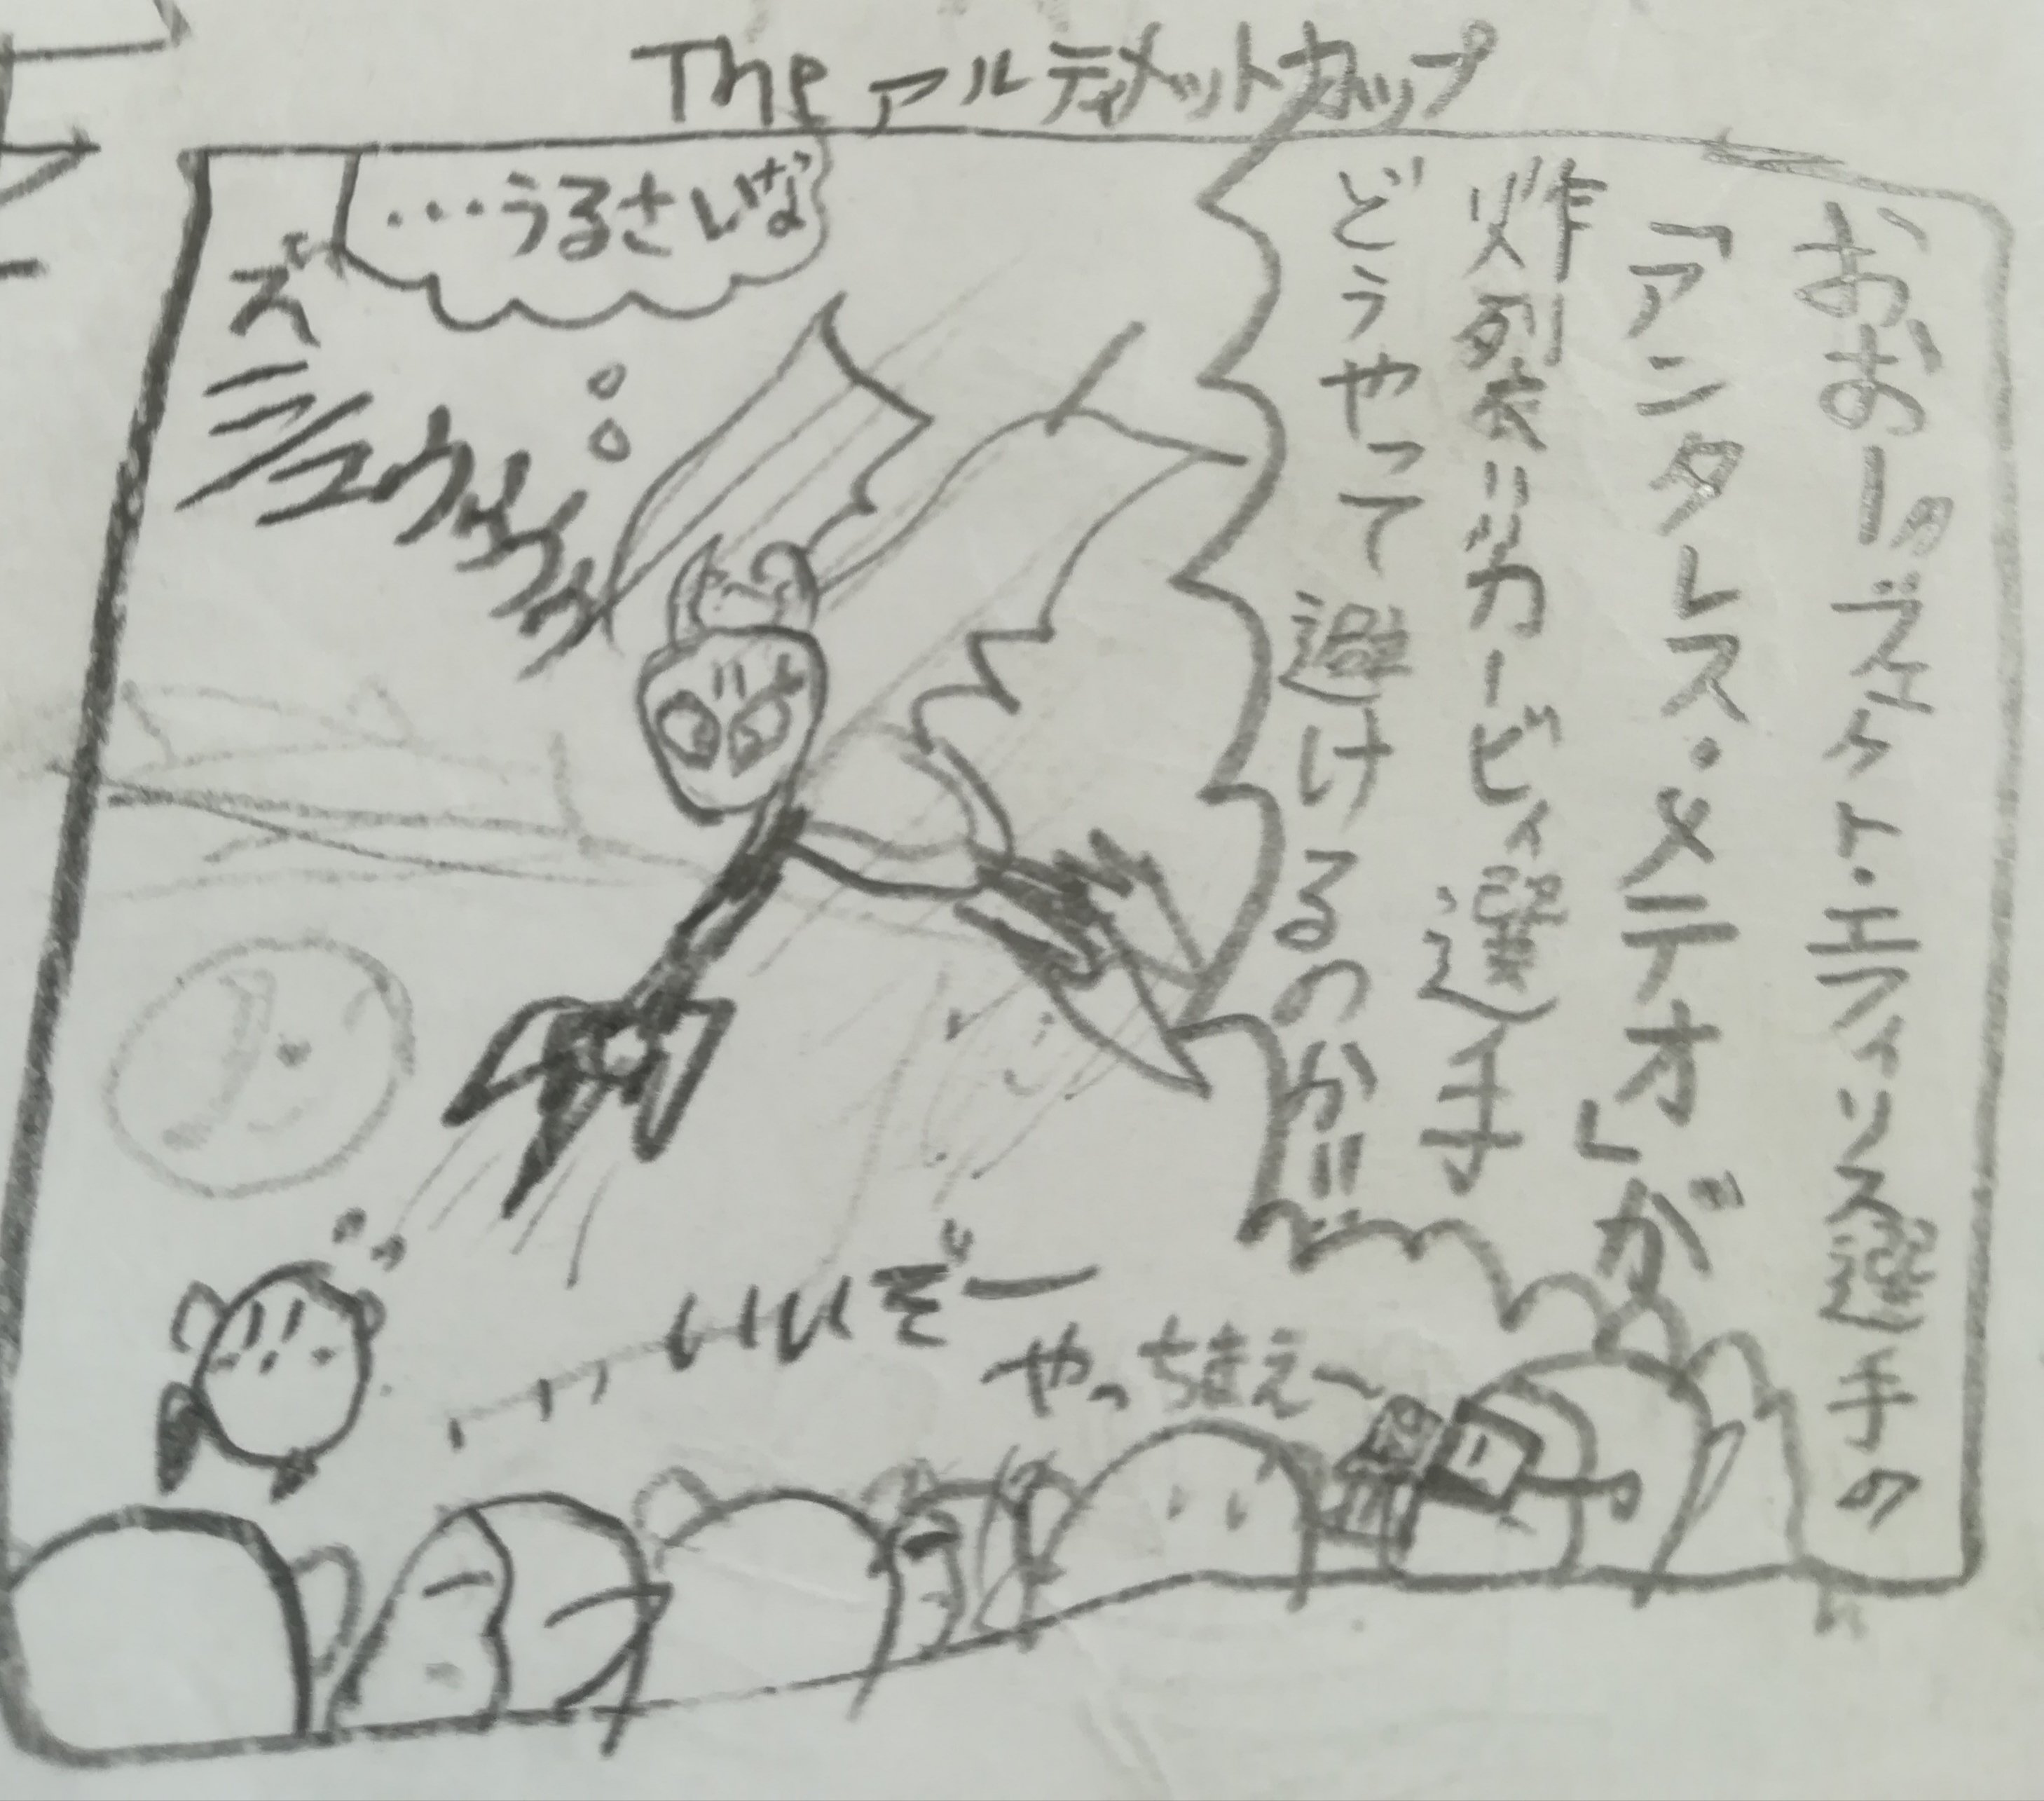 The アルティメットカップ
おおーっとズェクト・エフィリス選手の
「アンタレス・メテオ」が
炸列衣!!カービィ選手
どうやって避けるのか!!
…うるさいな
ズ
ミュウゥゥゥ
いいぞー
やっちまえ〜